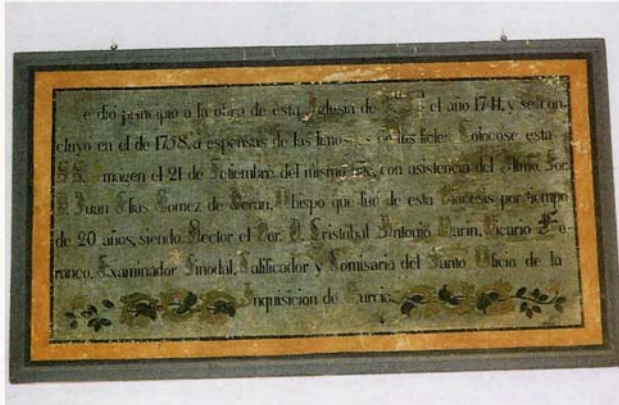 e dió principio a la obra de esta Iglesia de el año 1741, y se con-
cluyo en el de 1758, á espensas de las limosnas de los fieles. Colocose esta
magen el 21 de Setiembre del mismo con asistencia del Ilmo. Sor.
D. Juan Elias Gomez de Teran, Obispo que fue de esta Diocesis por tiempo
de 20 años, siendo Rector el Dor. D. Cristobal Antonio Marin, Vicario Fo-
raneo, Examinador Sinodal, Calificador y Comisario del Santo Oficio de la
Inquisicion de Murcia.